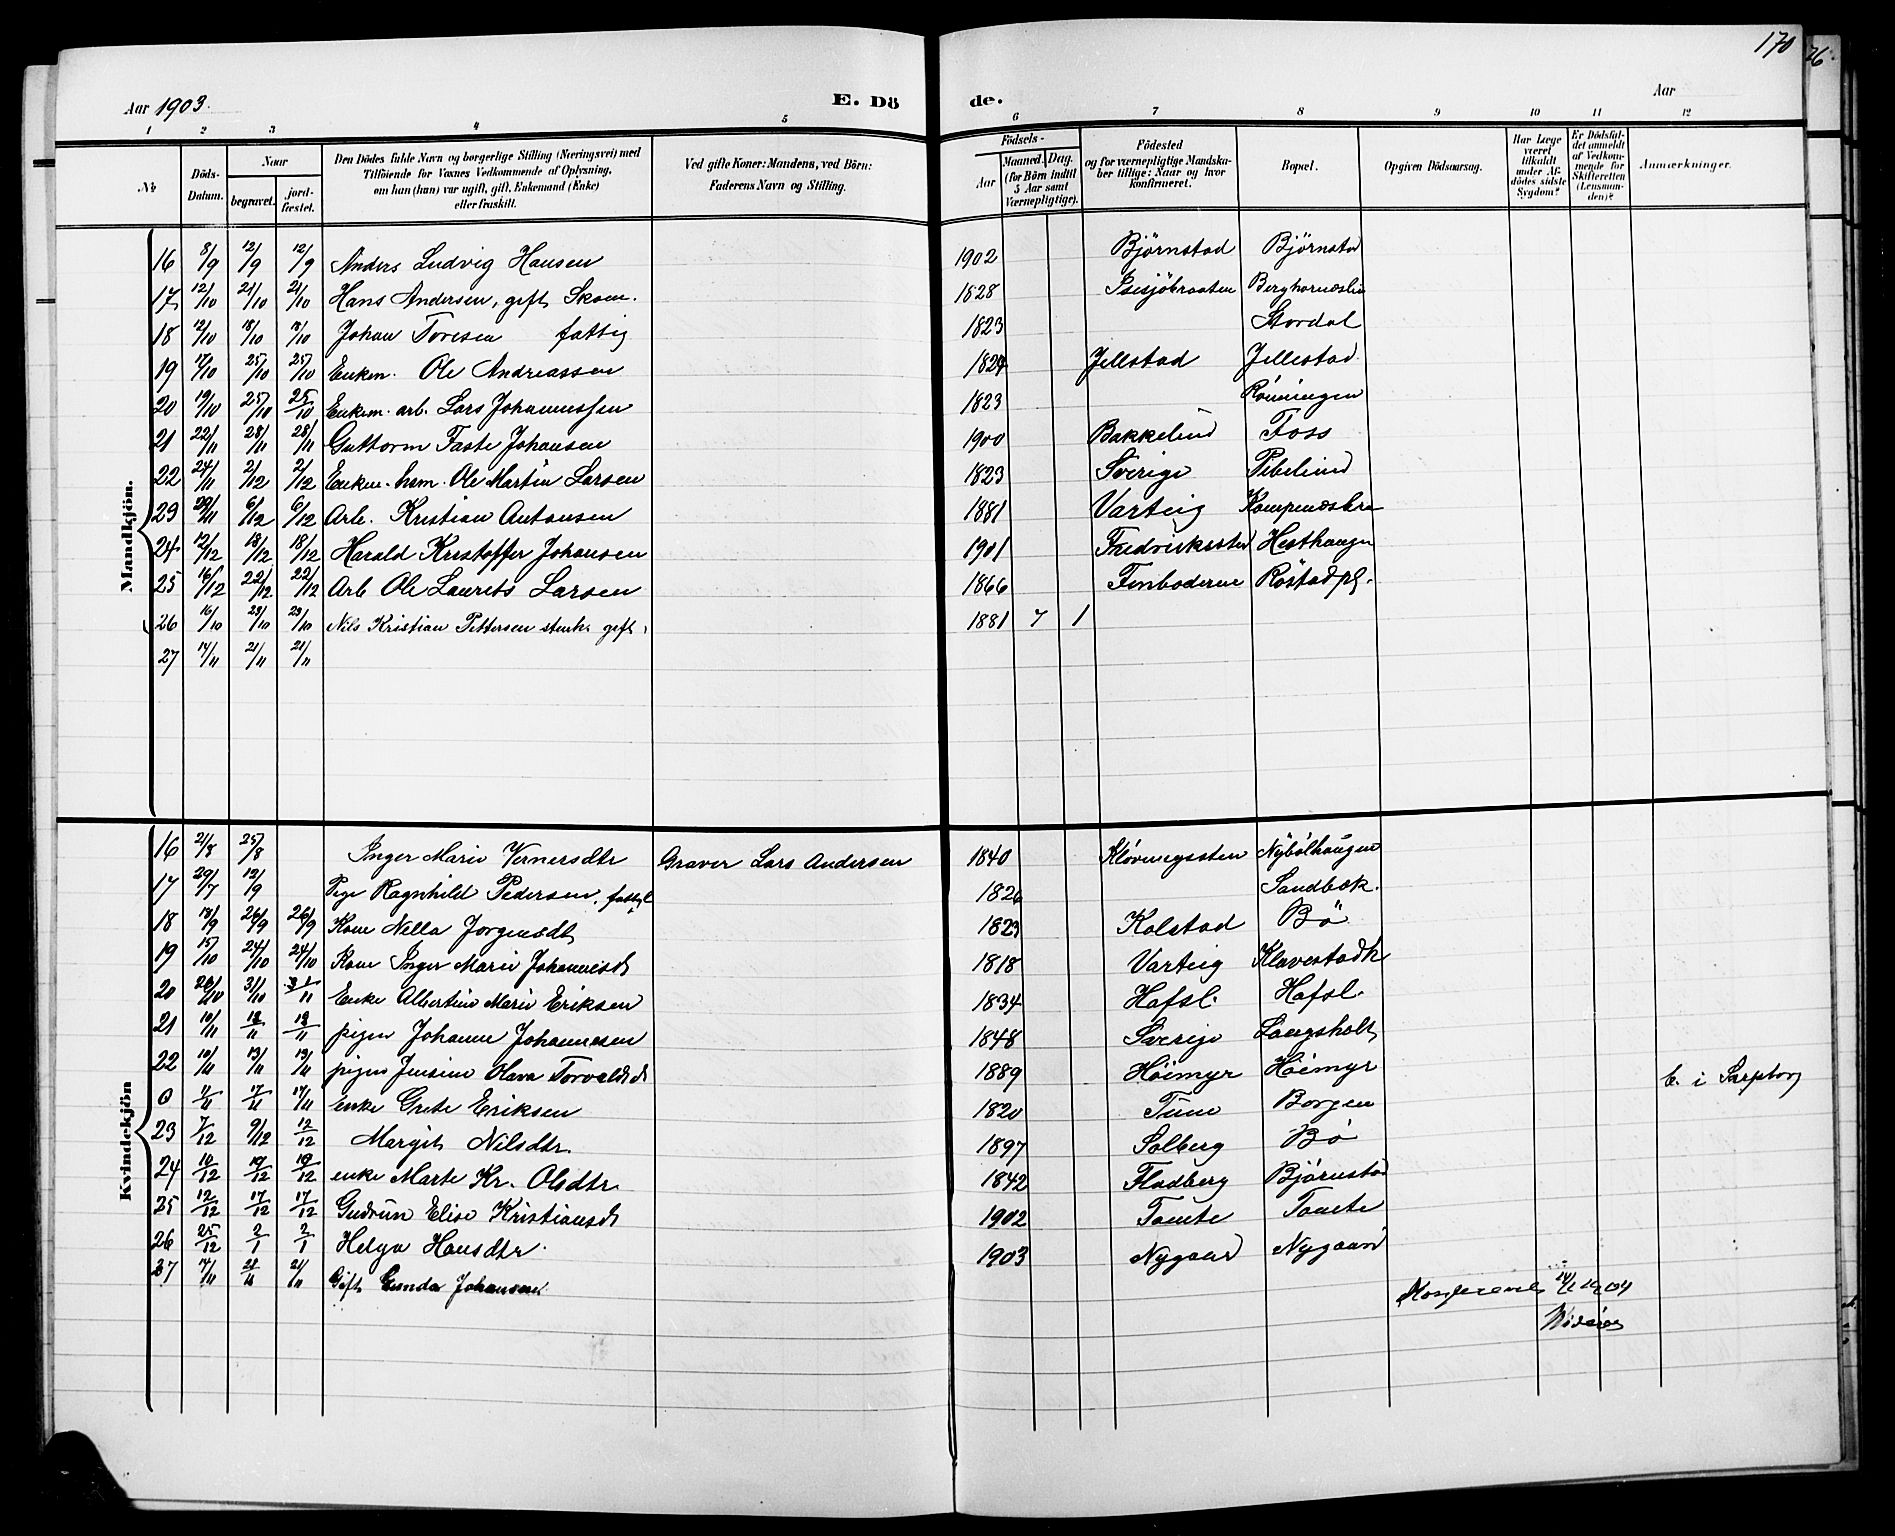 170
26
Aar 1903. E. Dö de. Aar
1 2 3 4 5 6 7 8 9 10 11 12
№ Döds-Datum. Naar begravet. jordfæstet. Den Dödes fulde Navn og borgerlige Stilling (Næringsvei) med Tilföiende for Voxnes Vedkommende af Oplysning, om hun (han) var ugift, gift, Enkemand (Enke) eller fraskilt. Ved gifte Koner: Mandens, ved Börn: Faderens Navn og Stilling. Födsels- Aar Maaned. Dag. (for Börn indtil 5 Aar samt Værnepligtige). Födested og for værnepligtige Mandskaber tillige: Naar og hvor konfirmeret. Bopæl. Opgiven Dödsaarsag. Har Læge været tilkaldt under Afdödes sidste Sygdom? Er Dödsfaldet anmeldt af Vedkommende for Skifteretten (Lensmanden)? Anmærkninger.
Mandkjön.
16 8/9 12/9 12/9 Anders Ludvig Hansen 1902 Björnstad Björnstad
17 12/10 21/10 21/10 Hans Andersen, gift Skom. 1828 Isesjöbraaten Berghornæslia
18 12/10 18/10 18/10 Johan Toresen fattig 1823 Stordal
19 17/10 25/10 25/10 Enkem. Ole Andreassen 1824 Jellstad Jellestad
20 19/10 25/10 25/10 Enkem. arb. Lars Johannessen 1823 Rönningen
21 22/11 28/11 28/11 Guttorm Faste Johansen 1900 Bakkelund Foss
22 24/11 2/12 2/12 Enkem. hsm. Ole Martin Larsen 1823 Sverige Pibelund
23 29/11 6/12 6/12 Arb. Kristian Antonsen 1881 Varteig Kampenæsbra
24 12/12 18/12 18/12 Harald Kristoffer Johansen 1901 Fredriksstad Hesthaugen
25 16/12 22/12 22/12 Arb Ole Laurets Larsen 1866 Finboderne Röstadpl.
26 16/10 23/10 23/10 Nils Kristian Pettersen stenh. gift 1881 7 1
27 14/11 21/11 21/11
Kvindekjön
16 21/8 25/8 Inger Marie Vernersdtr Graver Lars Andersen 1840 Klövningssten Nybölhaugen
17 29/7 12/9 Pige Ragnhild Pedersen, fattigl 1826 Sandbæk.
18 18/9 26/9 26/9 Kone Nella Jorgensdt 1823 Kolstad Bö
19 15/10 24/10 24/10 Kone Inger Marie Johannesd 1818 Varteig Klavestadh
20 26/10 31/10 31/11 Enke Albertine Marie Eriksen 1834 Hafsl. Hafsl.
21 10/11 18/11 18/11 pigen Johanne Johannesen 1848 Sverige Langsholt
22 10/11 19/11 19/11 pigen Jensine Olava Torvaldsd 1889 Höimyr Höimyr
0 11/11 17/11 17/11 enke Grete Eriksen 1820 Tune Borgen b. i Sarpborg
23 7/12 9/12 12/12 Margit Nilsdtr. 1897 Solberg Bö
24 10/12 19/12 19/12 enke Marte Kr. Olsdtr 1842 Fladberg Björnstad
25 12/12 17/12 17/12 Gudrun Elise Kristiansd 1902 Tomte Tomte
26 25/12 2/1 2/1 Helga Hansdtr. 1903 Nygaard Nygaard
27 14/11 21/11 21/11 Gift Gunda Johansen
Konfereret